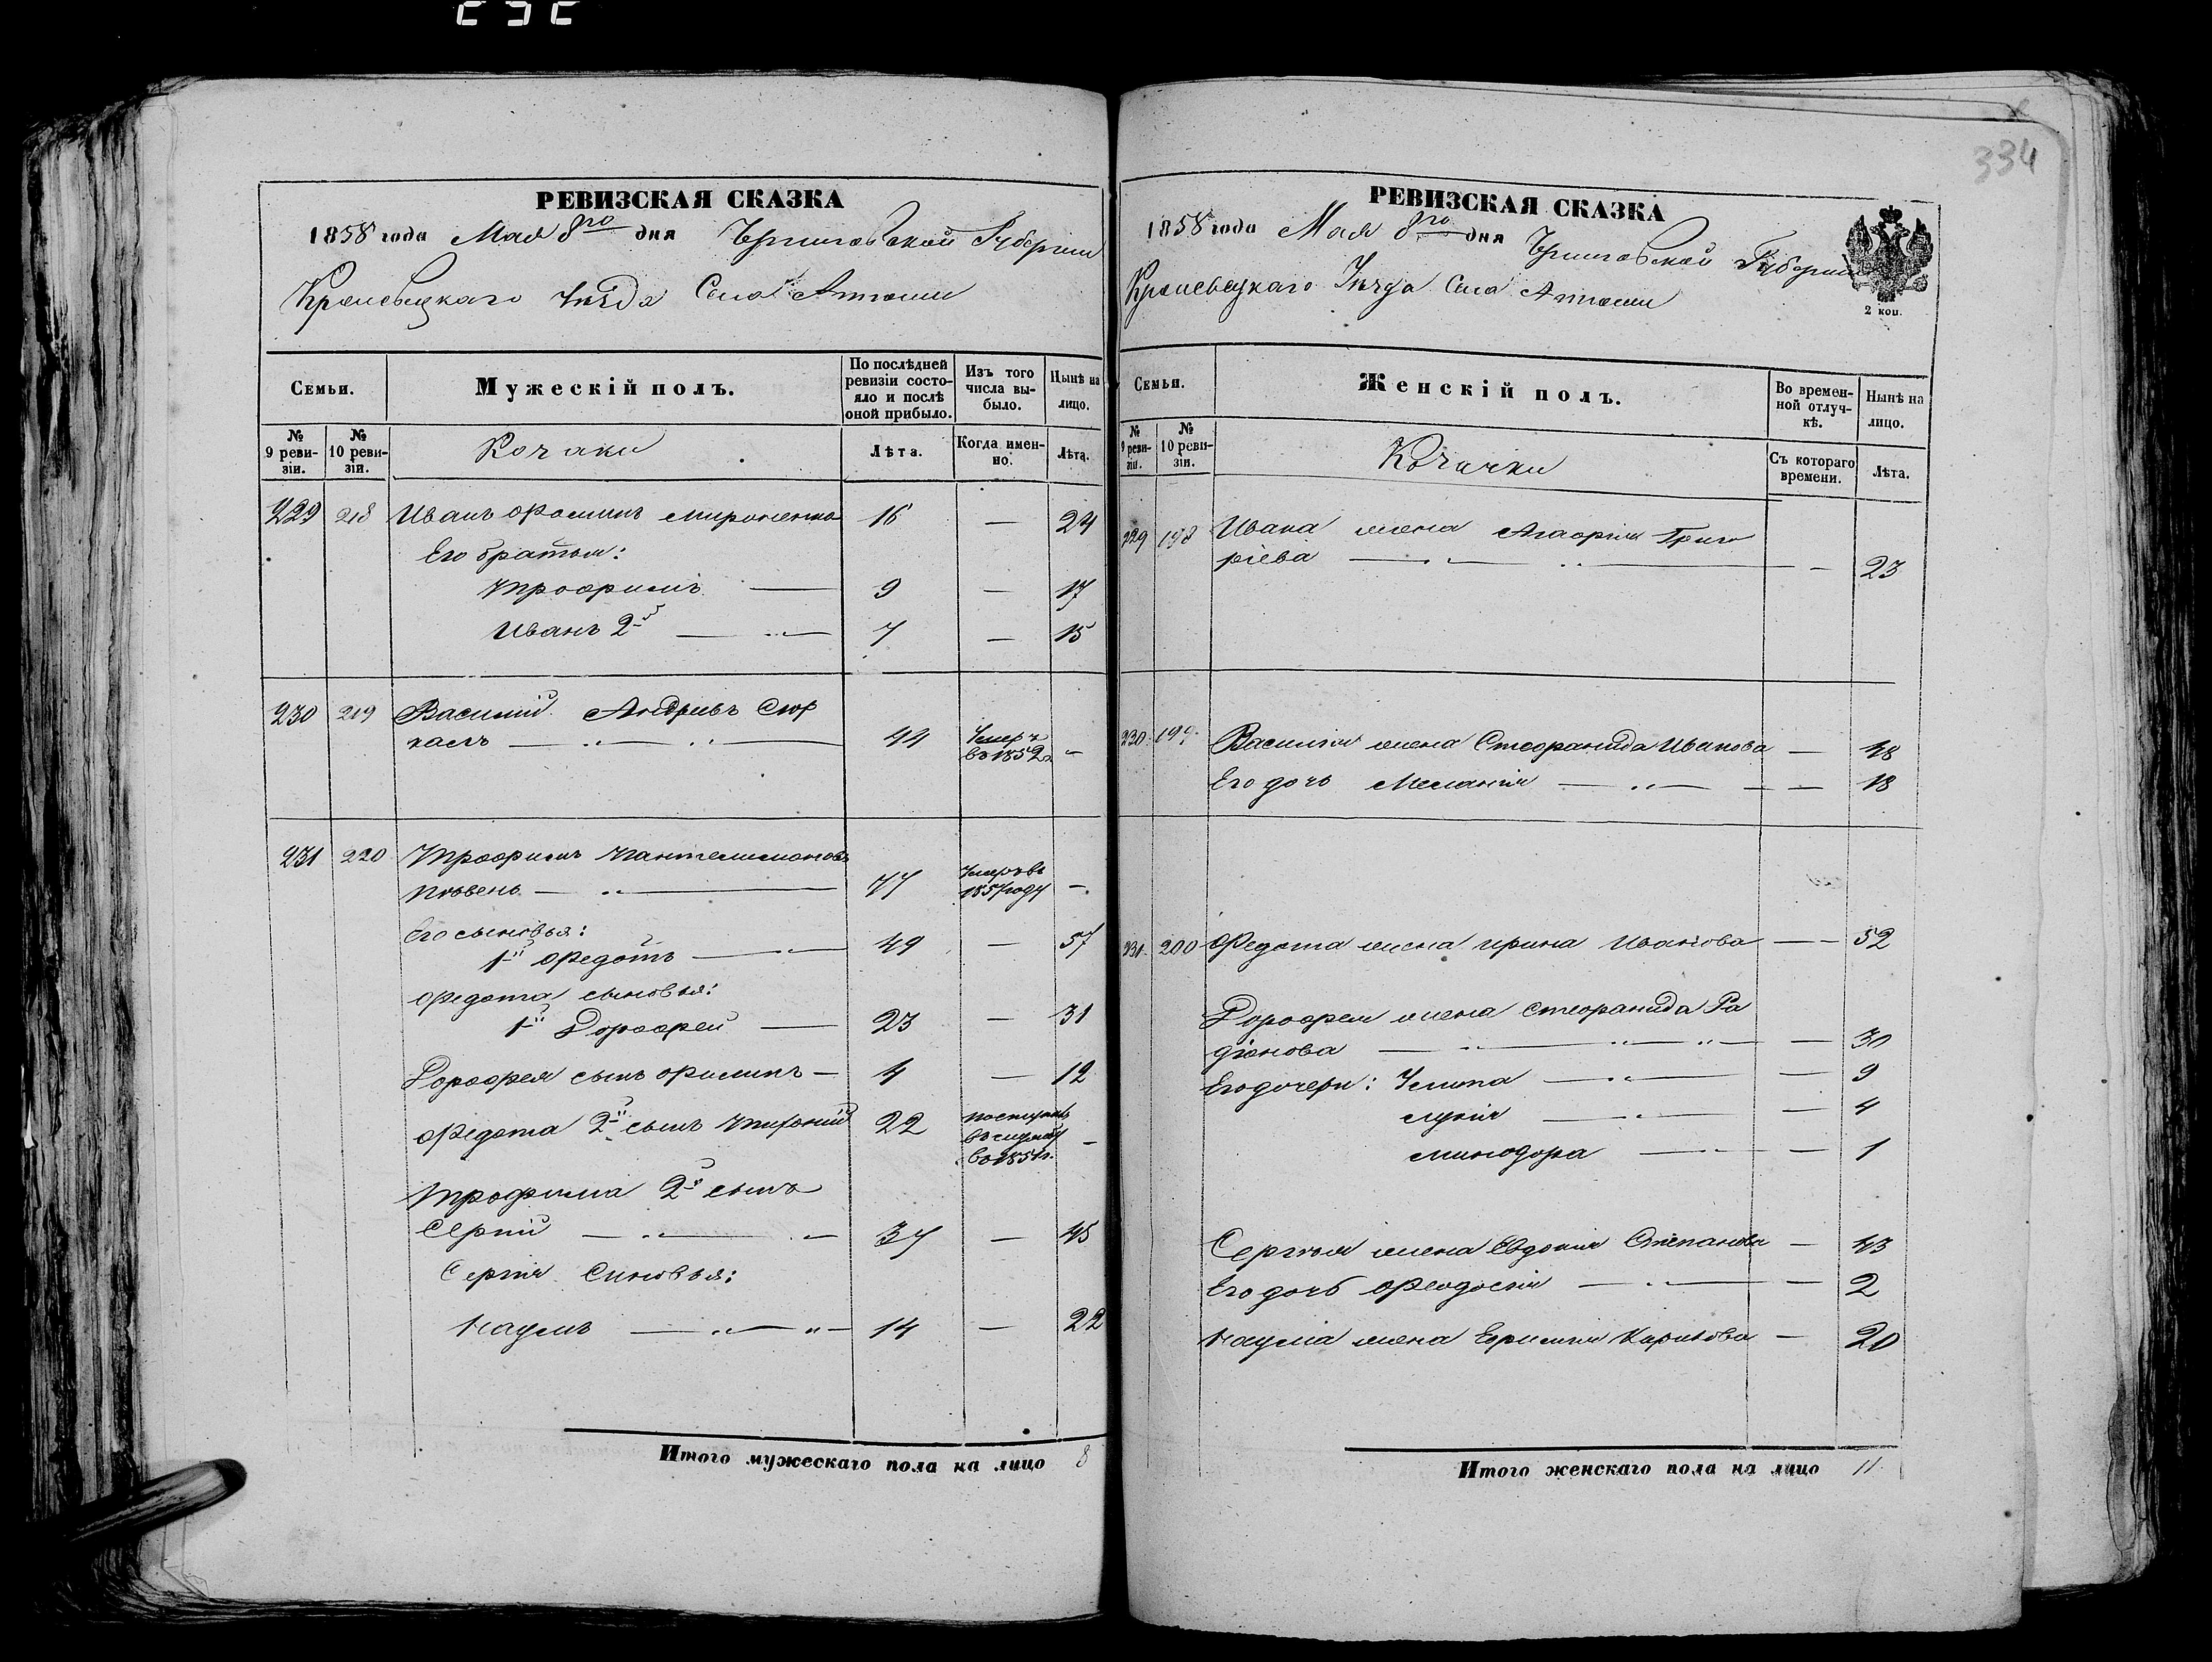 РЕВИЗСКАЯ СКАЗКА
1858 года Мая 8го дня Черниговской Губернии
Кролевецкаго Уезда Села
Семьи. Мужескій полъ. По послѣдней ревизіи состояло и послѣ оной прибыло. Изъ того числа выбыло. Нынѣ на лицо.
№ 9 ревизіи. № 10 ревизіи. Козаки Лѣта. Когда именно. Лѣта.
229 218 Иванъ Фоминъ Мироненко 16 — 24
Его братья:
Трофимъ — 9 — 17
Иванъ 2й — 7 — 15
230 219 Василій Андреевъ
— 44 Умеръ в 1852 —
231 220 Трофимъ Пантелимоновъ
— 77 Умеръ въ 1857 году —
Его сыновья:
1й Федотъ — 49 — 57
Федота сыновья:
1й Дорофей — 23 — 31
Дорофея сынъ Филипъ — 4 — 12
Федота 2й сынъ 22 поступилъ в 1851 г. —
Трофима 2й сынъ
Сергій — 37 — 45
Сергія Сыновья:
Наумъ — 14 — 22
Итого мужескаго пола на лицо 8
334
РЕВИЗСКАЯ СКАЗКА
1858 года Мая 8го дня Черниговской Губернии
Кролевецкаго Уезда Села
2 коп.
Семьи. Женскій полъ. Во временной отлучкѣ. Нынѣ на лицо.
№ 9 ревизіи. № 10 ревизіи. Козачки Съ котораго времени. Лѣта.
229 198 Ивана жена Агафія Григо
ріева — 23
230 199 Василія жена Стефанида Иванова — 48
Его дочь Меланія — 18
231 200 Федота жена Ирина Иванова — 52
Дорофея жена Стефанида Ра
діонова — 30
Его дочери: Улита — 9
Лукія — 4
Минодора — 1
Сергія жена Евдокія Степанова — 43
Его дочь Феодосія — 2
Наума жена Ефимія Карпова — 20
Итого женскаго пола на лицо 11